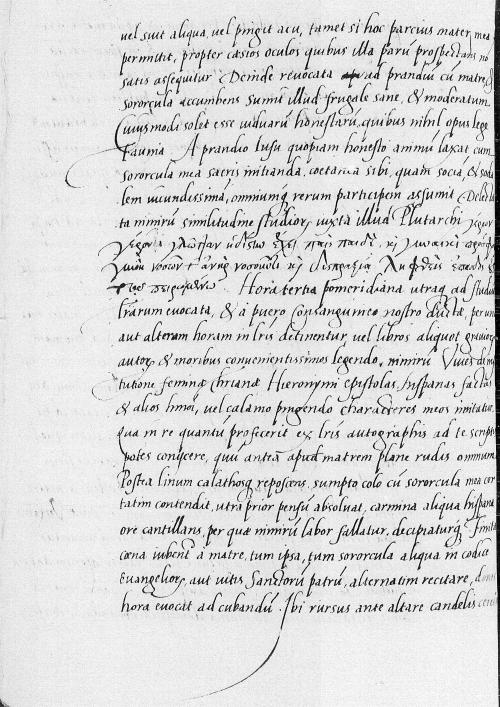 vel suit aliqua, vel pingit acu, tamet si hoc parcius mater mea
permittit, propter casios oculos quibus illa parũ prospectans nõ
satis assequitur. Deinde revocata ad prandiũ cũ matre, &
sororcula accumbens sumit illud frugale sane, & moderatum
Cuiusmodi solet esse viduarũ honestarũ, quibus nihil opus lege
Fannia. A prandio lusu quopiam honesto animũ laxat cum
sororcula mea sacris initianda, coetanea sibi, quam sociã, & soda
lem iucundissimã, omniumq; rerum participem assumit. Delecta
ta nimirũ similitudine studiorũ iuxta illud Plutarchi γέρων
γέροντι γλῶτταν ἡδίστω ἔχει, παῖς παιδί, κỳ γυναικὶ
νοσῶν τ' ἀνὴρ νοσοῦντι κỳ δυσπραξίᾳ ληφθεὶς
Hora tertia pomeridiana utraq; ad studia
lrãrum evocata, & à puero consanguineo nostro ducta, per unã
aut alteram horam in lris detinentur, vel libros aliquot graviorũ
autorũ & moribus convenientissimos legendo, nimirũ Vivis de ins
titutione feminę chrianę, Hieronymi epistolas, hispanas factas
& alios hmõi, vel calamo pingendo characteres meos imitatur,
qua in re quantũ profecerit ex lris autographis ad te scriptis
potes conijcere, quũ anteà apud matrem plane rudis omnium
Postea linum calathosq; reposcens, sumpto colo cũ sororcula mea cer
tatim contendit, utra prior pensũ absolvat, carmina aliqua hispano
ore cantillans, per quæ nimirũ labor fallatur, decipiaturq;. Finita
cœna iubent a matre, tum ipsa, tum sororcula aliqua in codice
Evangeliorũ, aut vitis Sanctorũ patrũ, alternatim recitare, donec
hora evocat ad cubandũ. Ibi rursus ante altare candelis